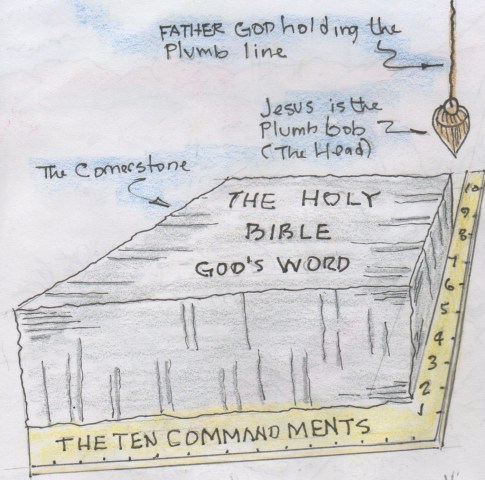 FATHER GOD holding the
Plumb line
Jesus is the
Plumb bob
(The Head)
The Cornerstone
THE HOLY
BIBLE
GOD'S WORD
10
9
8
7
6
5
4
3
2
1
THE TEN COMMANDMENTS